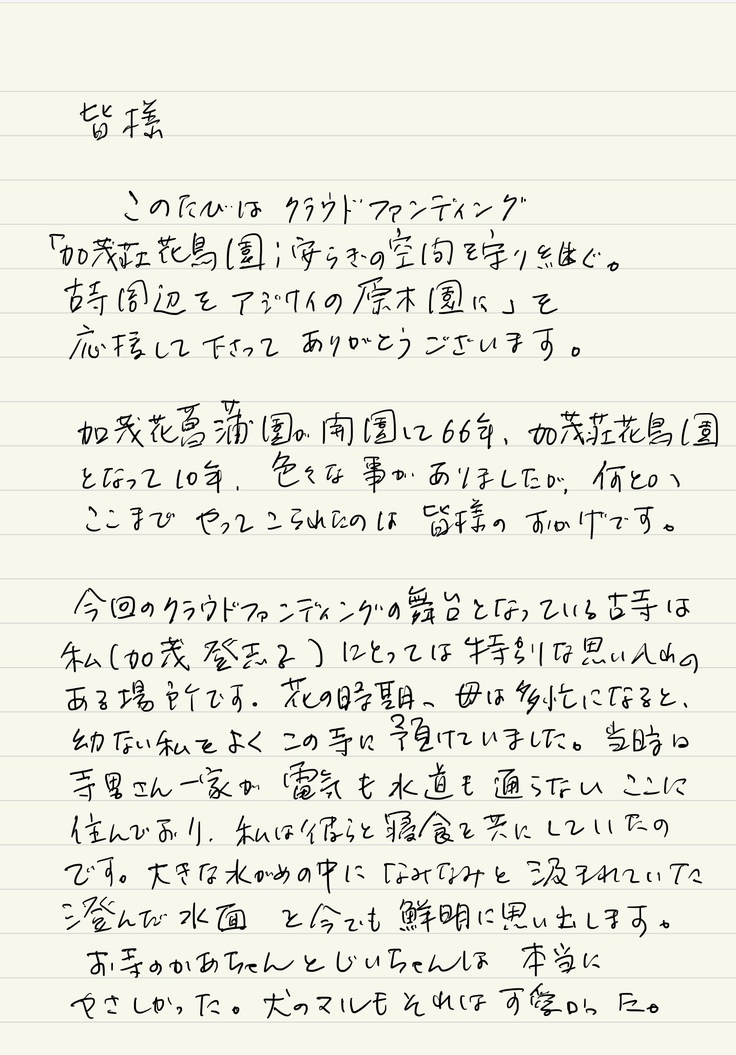 皆様
このたびは クラウドファンディング
「加茂荘花鳥園;安らぎの空間を守り継ぐ。
古寺周辺を アジサイの原木園に」を
応援して下さって ありがとうございます。
加茂花菖蒲園が開園して66年、加茂荘花鳥園
となって10年、色々な事がありましたが、何とか
ここまで やってこられたのは 皆様の おかげです。
今回のクラウドファンディングの舞台となっている古寺は
私(加茂 登志子)にとっては特別な思い入れの
ある場所です。花の時期、母は多忙になると、
幼ない私をよく この寺に 預けていました。当時は
寺男さん一家が 電気も水道も通らない ここに
住んでおり、私は彼らと寝食を共にしていたの
です。大きな水がめの中に なみなみと 汲まれていた
澄んだ 水面 を今でも 鮮明に思い出します。
お寺のかあちゃんとじいちゃんは 本当に
やさしかった。犬のマルも それは 可愛かった。